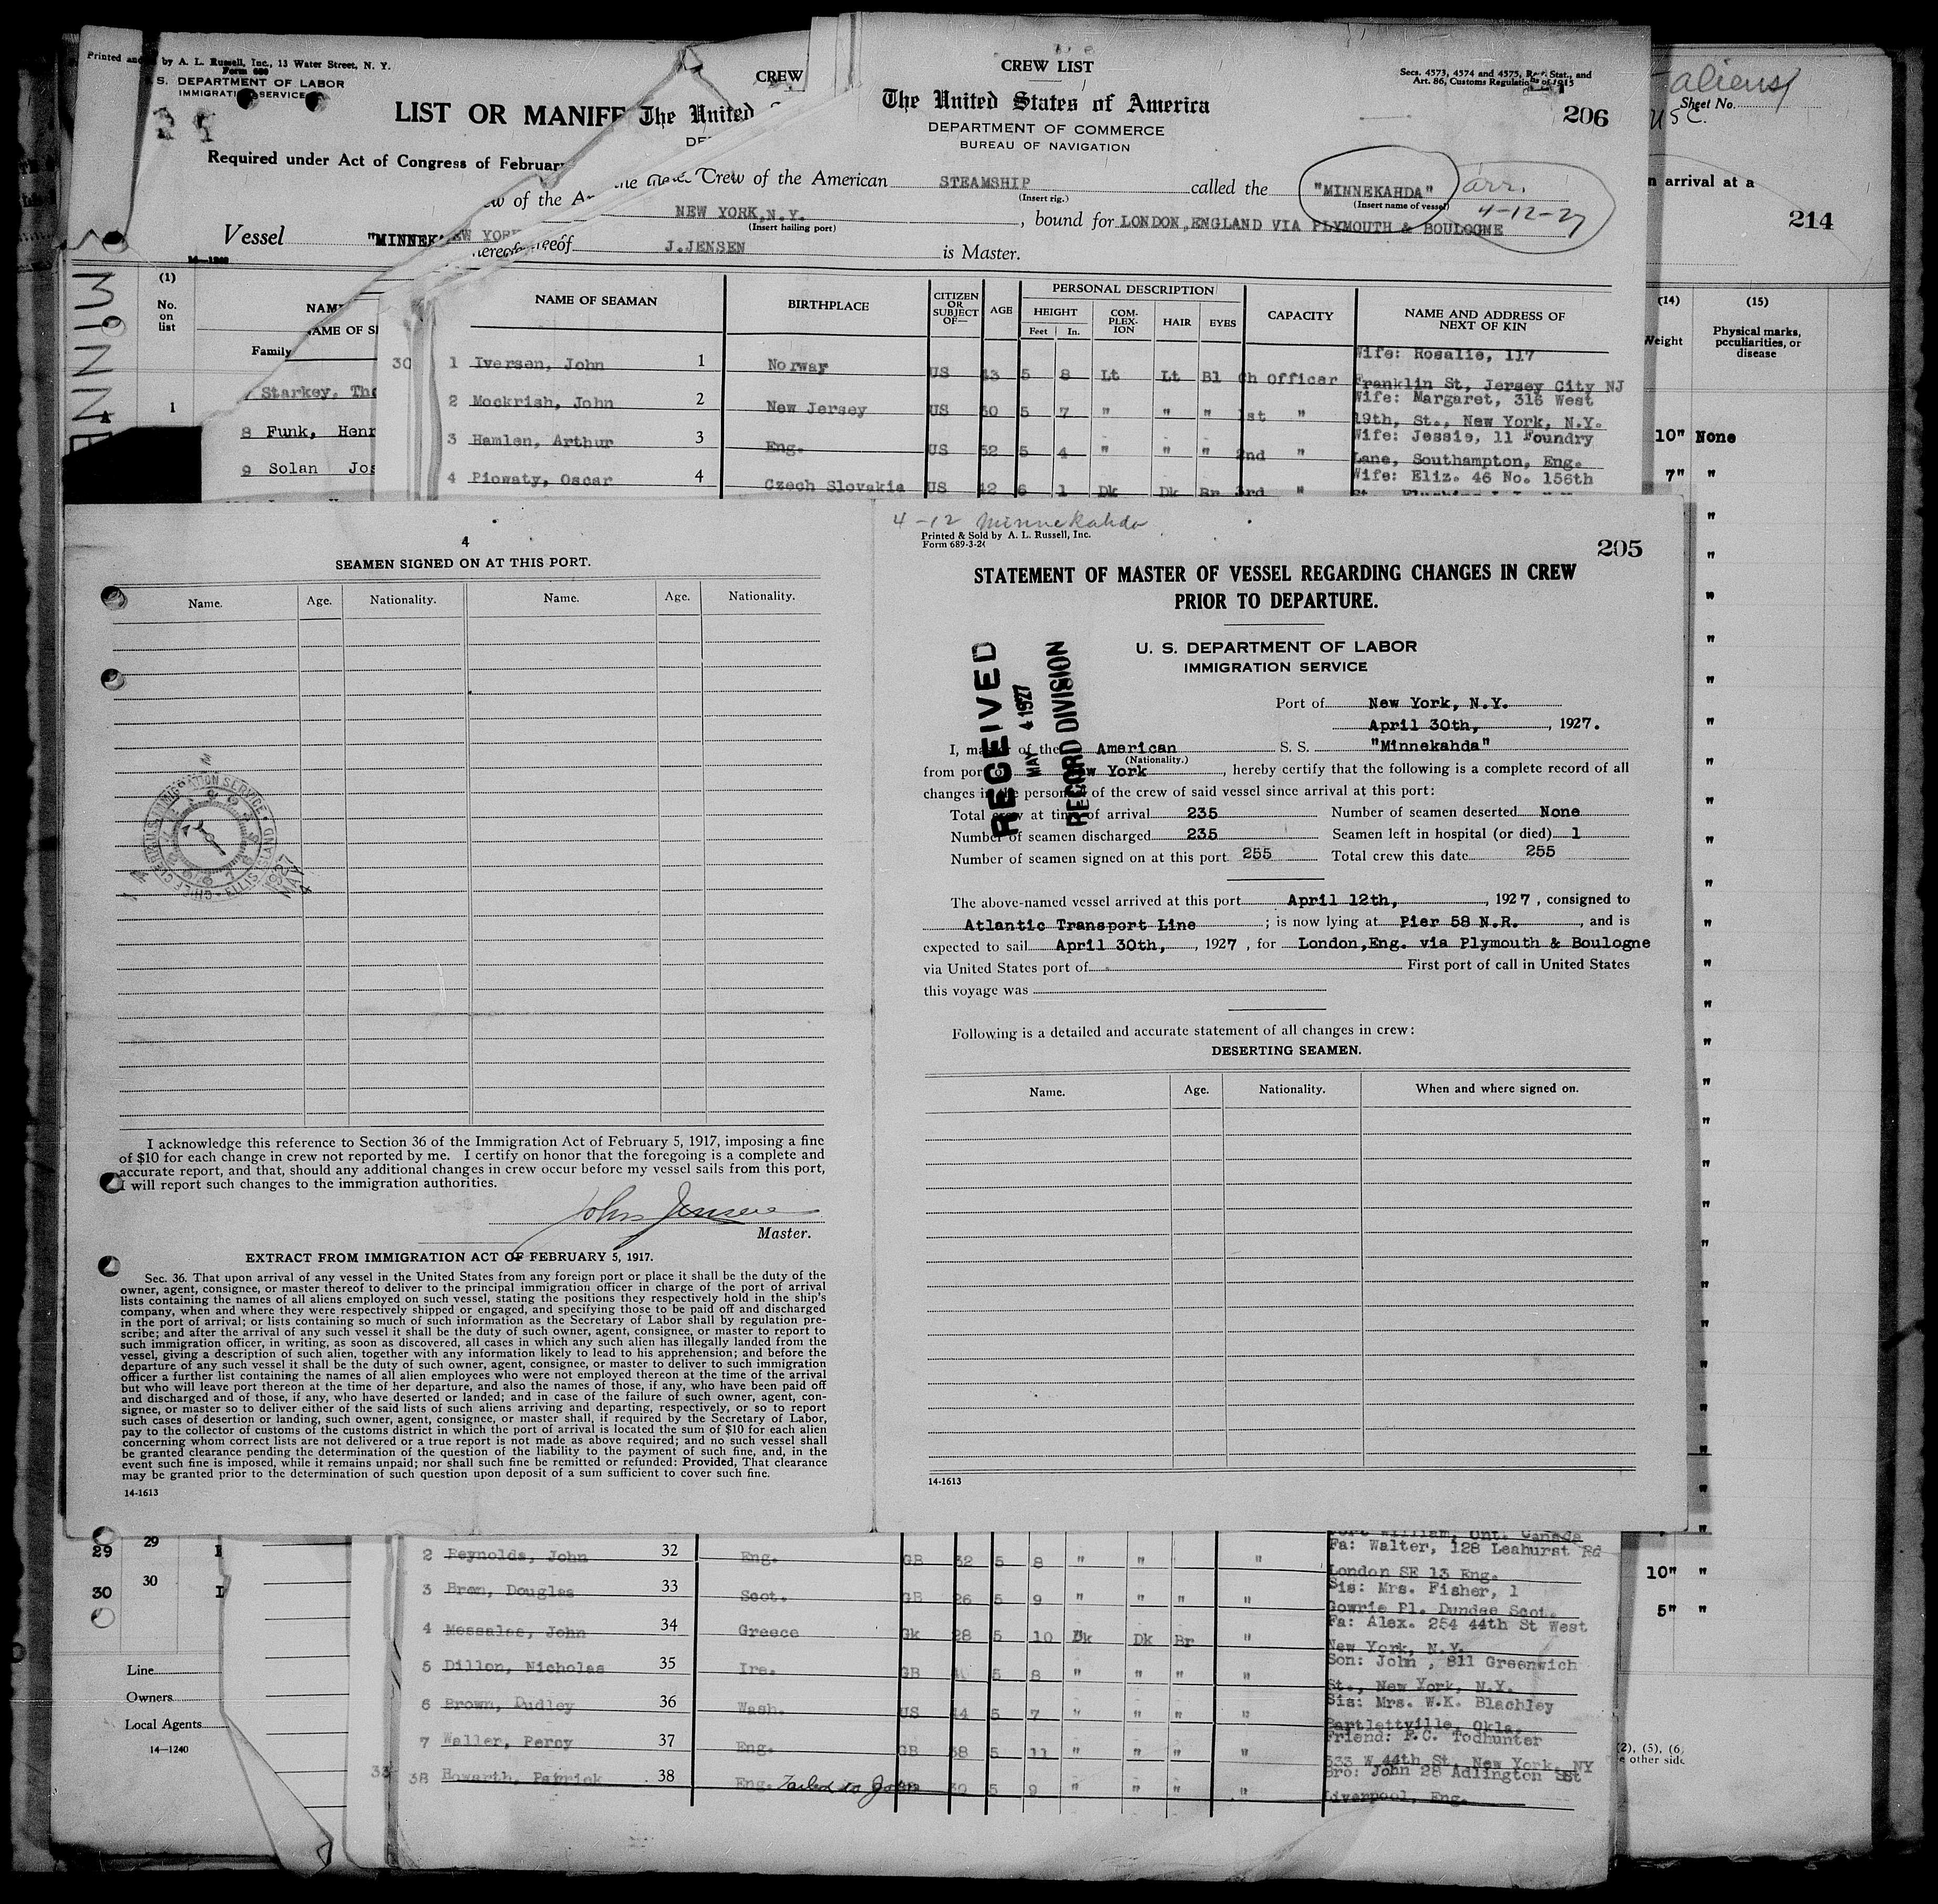 Printed and by A. L. Russell, Inc., 13 Water Street, N. Y.
Form 689
S. DEPARTMENT OF LABOR
IMMIGRATION SERVICE
LIST OR MANIFE
Required under Act of Congress of February
Vessel "MINNEK
14-1240
MINNE
(1)
No.
on
list
NAM
Family
Starkey, Tho
1
8 Funk, Henr
9 Solan Jos
CREW
The United S
DEP
NEW YOR
NAME OF S
30
CREW LIST
Secs. 4573, 4574 and 4575, Rev. Stat., and
Art. 86, Customs Regulations of 1915
The United States of America
206
DEPARTMENT OF COMMERCE
BUREAU OF NAVIGATION
Crew of the American STEAMSHIP called the "MINNEKAHDA" arr.
(Insert rig.) (Insert name of vessel) 4-12-27
NEW YORK,N.Y. , bound for LONDON,ENGLAND VIA PLYMOUTH & BOULOGNE
(Insert hailing port)
hereof J.JENSEN is Master.
NAME OF SEAMAN BIRTHPLACE CITIZEN OR SUBJECT OF— AGE PERSONAL DESCRIPTION CAPACITY NAME AND ADDRESS OF NEXT OF KIN
HEIGHT COM-PLEX-ION HAIR EYES
Feet In.
1 Iversen, John 1 Norway US 43 5 8 Lt Lt Bl Ch Officer Wife: Rosalie, 117
Franklin St, Jersey City NJ
2 Mockrish, John 2 New Jersey US 30 5 7 " " " 1st " Wife: Margaret, 316 West
19th, St., New York, N.Y.
3 Hamlen, Arthur 3 Eng. US 52 5 4 " " " 2nd " Wife: Jessie, 11 Foundry
Lane, Southampton, Eng.
4 Piowaty, Oscar 4 Czech Slovakia US 42 6 1 Dk Dk Br 3rd " Wife: Eliz. 46 No. 156th
aliens
Sheet No.
USC.
n arrival at a
214
(14) (15)
Weight Physical marks,
peculiarities, or
disease
10" None
7" "
4
SEAMEN SIGNED ON AT THIS PORT.
Name. Age. Nationality. Name. Age. Nationality.
U.S. IMMIGRATION SERVICE
CHIEF CLERK
ELLIS ISLAND
1927
MAY
4
I acknowledge this reference to Section 36 of the Immigration Act of February 5, 1917, imposing a fine
of $10 for each change in crew not reported by me. I certify on honor that the foregoing is a complete and
accurate report, and that, should any additional changes in crew occur before my vessel sails from this port,
I will report such changes to the immigration authorities.
John Jensen
Master.
EXTRACT FROM IMMIGRATION ACT OF FEBRUARY 5, 1917.
Sec. 36. That upon arrival of any vessel in the United States from any foreign port or place it shall be the duty of the
owner, agent, consignee, or master thereof to deliver to the principal immigration officer in charge of the port of arrival
lists containing the names of all aliens employed on such vessel, stating the positions they respectively hold in the ship's
company, when and where they were respectively shipped or engaged, and specifying those to be paid off and discharged
in the port of arrival; or lists containing so much of such information as the Secretary of Labor shall by regulation pre-
scribe; and after the arrival of any such vessel it shall be the duty of such owner, agent, consignee, or master to report to
such immigration officer, in writing, as soon as discovered, all cases in which any such alien has illegally landed from the
vessel, giving a description of such alien, together with any information likely to lead to his apprehension; and before the
departure of any such vessel it shall be the duty of such owner, agent, consignee, or master to deliver to such immigration
officer a further list containing the names of all alien employees who were not employed thereon at the time of the arrival
but who will leave port thereon at the time of her departure, and also the names of those, if any, who have been paid off
and discharged and of those, if any, who have deserted or landed; and in case of the failure of such owner, agent, con-
signee, or master so to deliver either of the said lists of such aliens arriving and departing, respectively, or so to report
such cases of desertion or landing, such owner, agent, consignee, or master shall, if required by the Secretary of Labor,
pay to the collector of customs of the customs district in which the port of arrival is located the sum of $10 for each alien
concerning whom correct lists are not delivered or a true report is not made as above required; and no such vessel shall
be granted clearance pending the determination of the question of the liability to the payment of such fine, and, in the
event such fine is imposed, while it remains unpaid; nor shall such fine be remitted or refunded: Provided, That clearance
may be granted prior to the determination of such question upon deposit of a sum sufficient to cover such fine.
14-1613
4-12 Minnekahda
Printed & Sold by A. L. Russell, Inc.
Form 689-3-24
205
STATEMENT OF MASTER OF VESSEL REGARDING CHANGES IN CREW
PRIOR TO DEPARTURE.
U. S. DEPARTMENT OF LABOR
IMMIGRATION SERVICE
RECEIVED
MAY 4 1927
RECORD DIVISION
Port of New York, N.Y.
April 30th, , 1927.
I, master of the American S. S. "Minnekahda"
(Nationality.)
from port of New York , hereby certify that the following is a complete record of all
changes in the personnel of the crew of said vessel since arrival at this port:
Total crew at time of arrival 235 Number of seamen deserted None
Number of seamen discharged 235 Seamen left in hospital (or died) 1
Number of seamen signed on at this port 255 Total crew this date 255
The above-named vessel arrived at this port April 12th, , 1927 , consigned to
Atlantic Transport Line ; is now lying at Pier 58 N.R. , and is
expected to sail April 30th, , 1927 , for London,Eng. via Plymouth & Boulogne
via United States port of First port of call in United States
this voyage was
Following is a detailed and accurate statement of all changes in crew:
DESERTING SEAMEN.
Name. Age. Nationality. When and where signed on.
14-1613
29 29
30 30
Line
Owners
Local Agents
14-1240
2 Reynolds, John 32 Eng. GB 32 5 8 " " " Fa: Walter, 128 Leahurst Rd
London SE 13 Eng.
3 Bron, Douglas 33 Scot. GB 26 5 9 " " " " Sis: Mrs. Fisher, 1
Gowrie Pl. Dundee Scot.
4 Messales, John 34 Greece Gk 28 5 10 Dk Dk Br " Fa: Alex. 254 44th St West
New York, N.Y.
5 Dillon, Nicholas 35 Ire. GB 5 8 " " " " Son: John , 811 Greenwich
St., New York, N.Y.
6 Brown, Dudley 36 Wash. US 44 5 7 " " " " Sis: Mrs. W.K. Blachley
Bartlettville, Okla.
7 Waller, Percy 37 Eng. GB 38 5 11 " " " " Friend: F.C. Todhunter
533 W 44th St, New York, NY
38 Howarth, Patrick 38 Eng. Failed to Join 30 5 9 " " " " Bro: John 28 Adlington St
Liverpool, Eng.
10" "
5" "
(2), (5), (6)
e other side